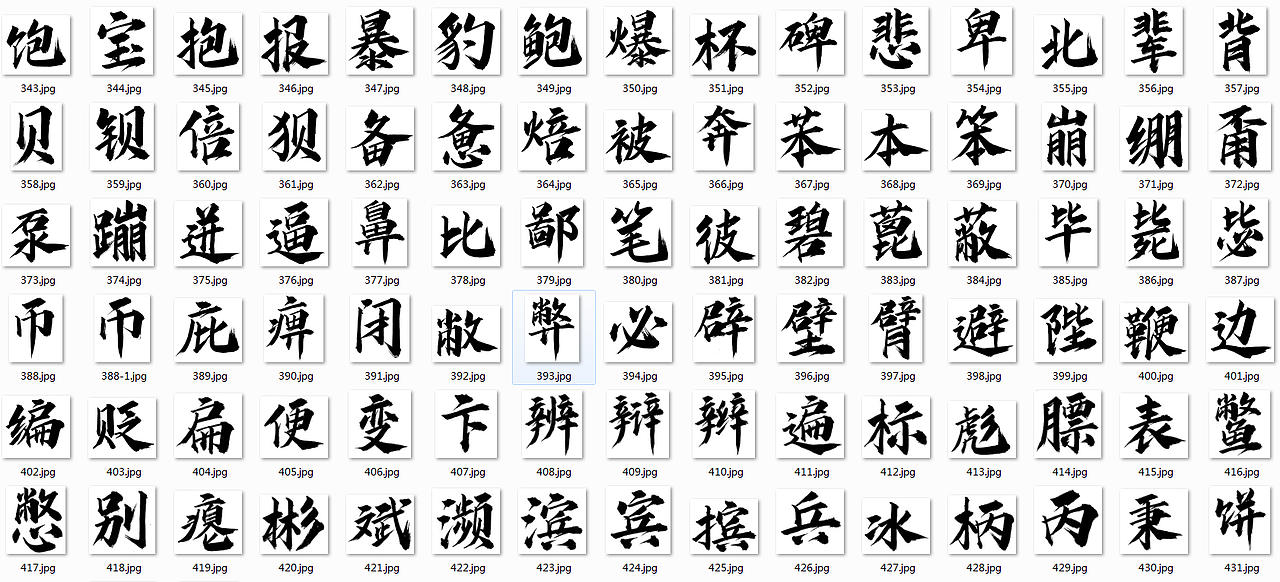 饱 宝 抱 报 暴 豹 鲍 爆 杯 碑 悲 卑 北 辈 背
343.jpg 344.jpg 345.jpg 346.jpg 347.jpg 348.jpg 349.jpg 350.jpg 351.jpg 352.jpg 353.jpg 354.jpg 355.jpg 356.jpg 357.jpg
贝 钡 倍 狈 备 惫 焙 被 奔 苯 本 笨 崩 绷 甭
358.jpg 359.jpg 360.jpg 361.jpg 362.jpg 363.jpg 364.jpg 365.jpg 366.jpg 367.jpg 368.jpg 369.jpg 370.jpg 371.jpg 372.jpg
泵 蹦 迸 逼 鼻 比 鄙 笔 彼 碧 蓖 蔽 毕 毙 毖
373.jpg 374.jpg 375.jpg 376.jpg 377.jpg 378.jpg 379.jpg 380.jpg 381.jpg 382.jpg 383.jpg 384.jpg 385.jpg 386.jpg 387.jpg
币 币 庇 痹 闭 敝 弊 必 辟 壁 臂 避 陛 鞭 边
388.jpg 388-1.jpg 389.jpg 390.jpg 391.jpg 392.jpg 393.jpg 394.jpg 395.jpg 396.jpg 397.jpg 398.jpg 399.jpg 400.jpg 401.jpg
编 贬 扁 便 变 卞 辨 辩 辫 遍 标 彪 膘 表 鳖
402.jpg 403.jpg 404.jpg 405.jpg 406.jpg 407.jpg 408.jpg 409.jpg 410.jpg 411.jpg 412.jpg 413.jpg 414.jpg 415.jpg 416.jpg
憋 别 瘪 彬 斌 濒 滨 宾 摈 兵 冰 柄 丙 秉 饼
417.jpg 418.jpg 419.jpg 420.jpg 421.jpg 422.jpg 423.jpg 424.jpg 425.jpg 426.jpg 427.jpg 428.jpg 429.jpg 430.jpg 431.jpg